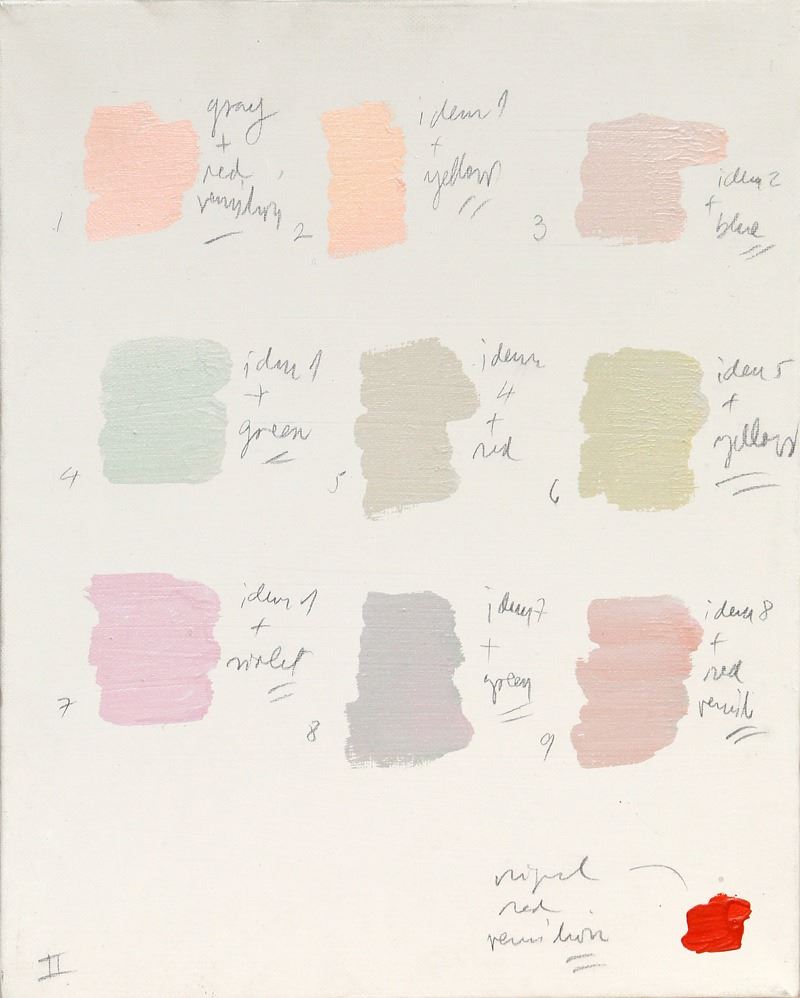 1
gray
+
red
vermilion
2
idem 1
+
yellow
3
idem 2
+
blue
4
idem 1
+
green
5
idem
4
+
red
6
idem 5
+
yellow
7
idem 1
+
violet
8
idem 7
+
green
9
idem 8
+
red
vermil
red
vermilion
II